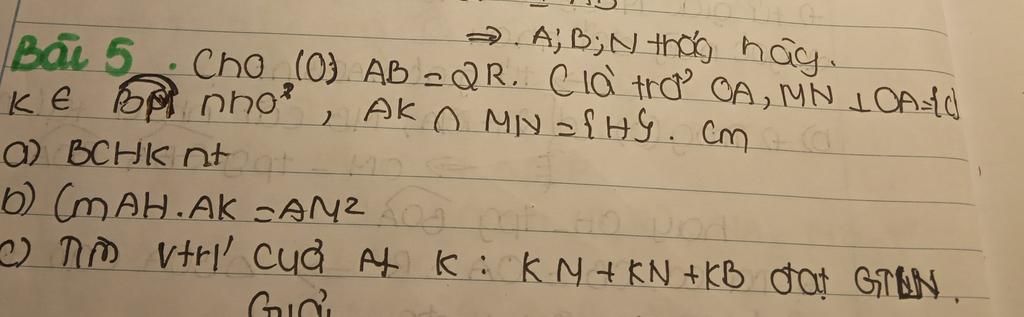 => . A; B; N thẳg hàg.
Bài 5 . Cho (O) AB = 2R. C là trđ OA, MN ⊥ OA = {C}
K ∈ BM nhỏ , AK ∩ MN = {H}. Cm
a) BCHK nt
b) Cm AH.AK = AM²
c) Tìm vtrí của K : KM + KN + KB đạt GTLN.
Giả